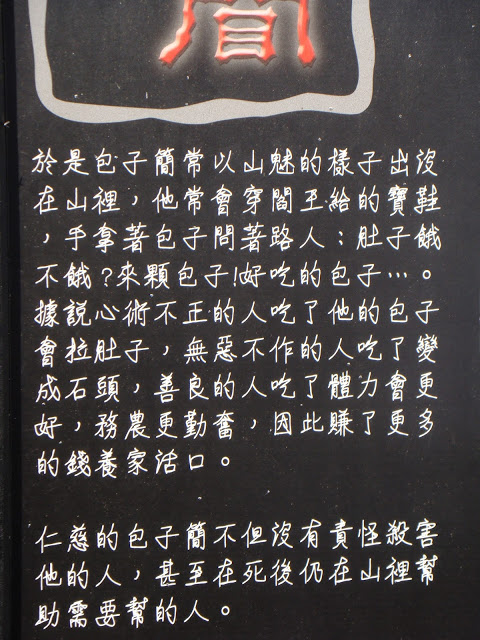 於是包子簡常以山魅的樣子出沒
在山裡，他常會穿閻王給的寶鞋
，手拿著包子問著路人：肚子餓
不餓？來顆包子！好吃的包子…。
據說心術不正的人吃了他的包子
會拉肚子，無惡不作的人吃了變
成石頭，善良的人吃了體力會更
好，務農更勤奮，因此賺了更多
的錢養家活口。
仁慈的包子簡不但沒有責怪殺害
他的人，甚至在死後仍在山裡幫
助需要幫的人。